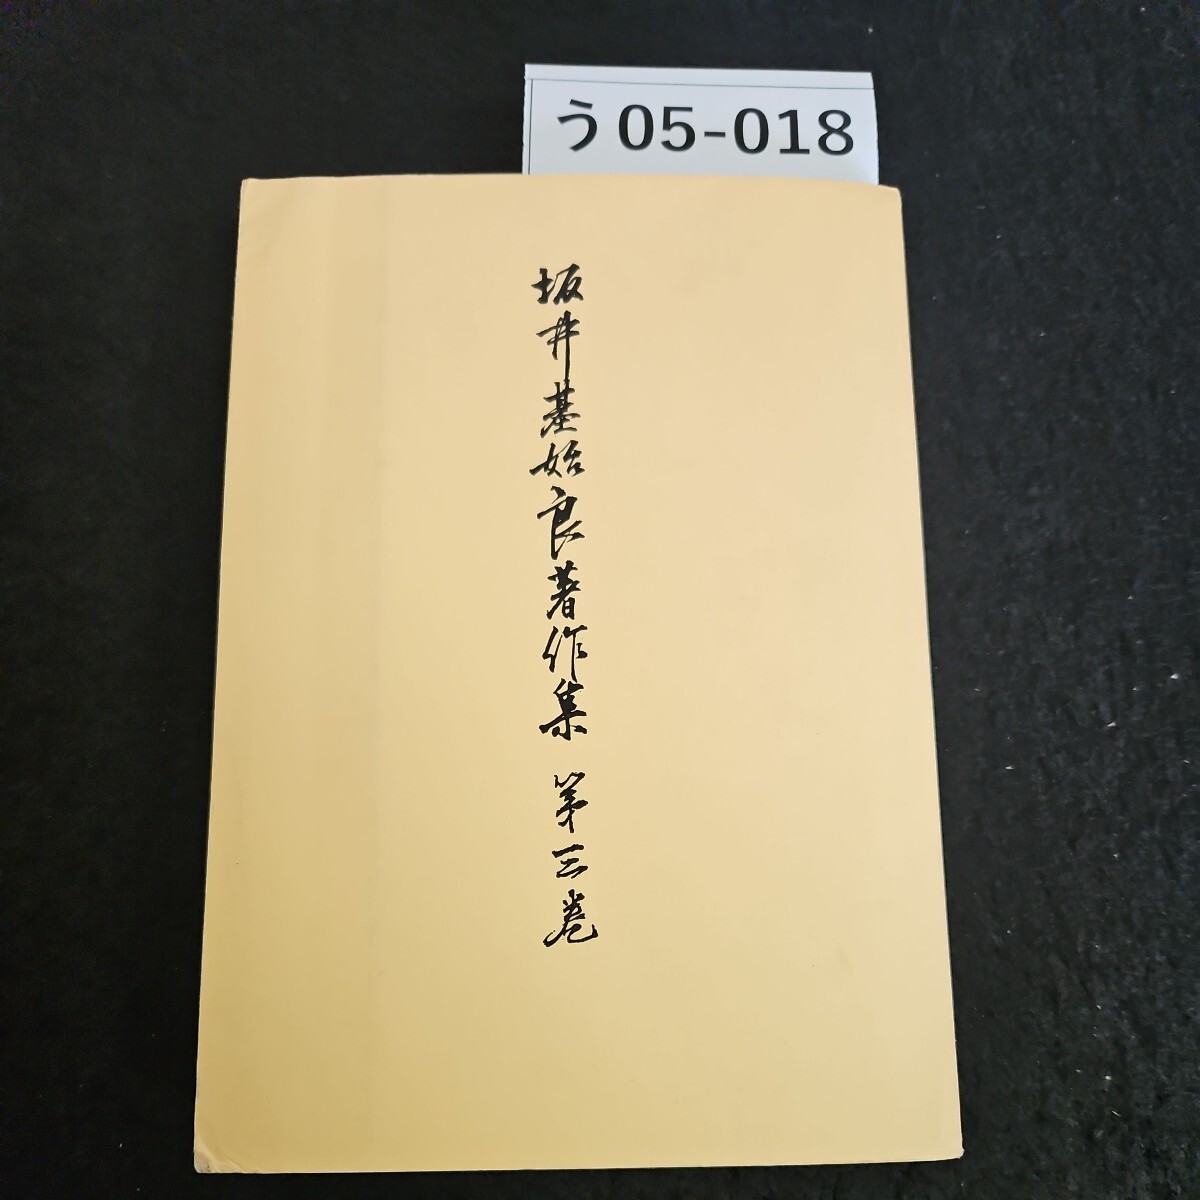 う05-018
坂井基始良著作集 第三巻